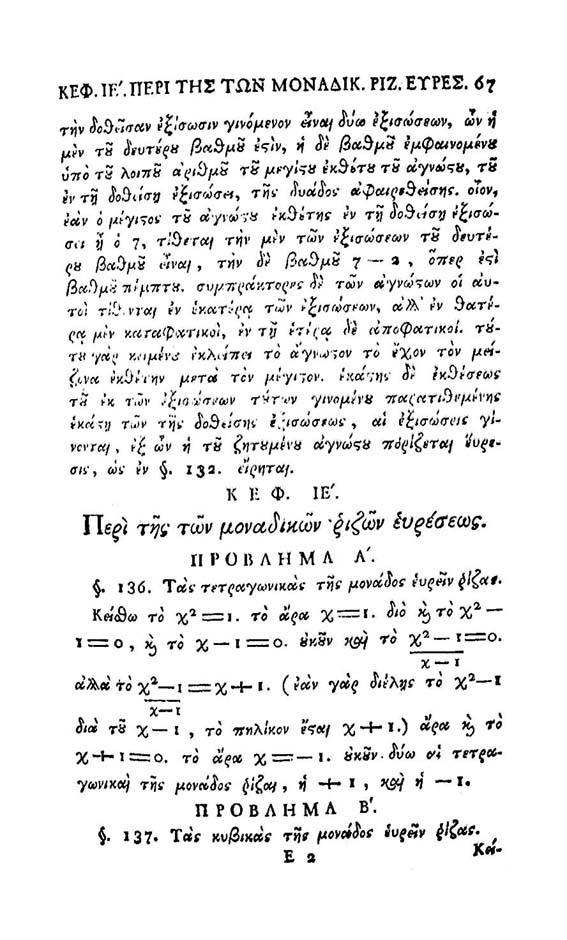 ΚΕΦ. ΙΕ΄. ΠΕΡΙ ΤΗΣ ΤΩΝ ΜΟΝΑΔΙΚ. ΡΙΖ. ΕΥΡΕΣ. 67
τὴν δοθεῖσαν ἐξίσωσιν γινόμενον εἶναι δύω ἐξισώσεων, ὧν ἡ
μὲν τȣ͂ δευτέρȣ βαθμȣ͂ ἐςὶν, ἡ δὲ βαθμȣ͂ ἐμφαινομένȣ
ὑπὸ τȣ͂ λοιπȣ͂ ἀριθμȣ͂ τȣ͂ μεγίςȣ ἐκθέτȣ τȣ͂ ἀγνώςȣ, τȣ͂
ἐν τῇ δοθείσῃ ἐξισώσει, τῆς δυάδος ἀφαιρεθείσης. οἷον,
ἐὰν ὁ μέγιςος τȣ͂ ἀγνώςȣ ἐκθέτης ἐν τῇ δοθείσῃ ἐξισώ-
σει ᾖ ὁ 7, τίθεται τὴν μὲν τῶν ἐξισώσεων τȣ͂ δευτέ-
ρȣ βαθμȣ͂ εἶναι, τὴν δὲ βαθμȣ͂ 7 — 2, ὅπερ ἐςὶ
βαθμȣ͂ πέμπτȣ. συμπράκτορες δὲ τῶν ἀγνώςων οἱ αὐ-
τοὶ τίθενται ἐν ἑκατέρᾳ τῶν ἐξισώσεων, ἀλλ' ἐν θατέ-
ρᾳ μὲν καταφατικοὶ, ἐν τῇ ἑτέρᾳ δὲ ἀποφατικοί. τȣ́-
τȣ γὰρ κειμένȣ ἐκλείπει τὸ ἄγνωςον τὸ ἔχον τὸν μεί-
ζονα ἐκθέτην μετὰ τὸν μέγιςον. ἑκάςης δὲ ἐκθέσεως
τȣ͂ ἐκ τῶν ἐξισώσεων τȣ́των γινομένȣ παρατιθεμένης
ἑκάςῃ τῶν τῆς δοθείσης ἐξισώσεως, αἱ ἐξισώσεις γί-
νονται, ἐξ ὧν ἡ τȣ͂ ζητȣμένȣ ἀγνώςȣ πορίζεται εὕρε-
σις, ὡς ἐν §. 132. εἴρηται.
ΚΕΦ. ΙΕ΄.
Περὶ τῆς τῶν μοναδικῶν ῥιζῶν ἑυρέσεως.
ΠΡΟΒΛΗΜΑ Α΄.
§. 136. Τὰς τετραγωνικὰς τῆς μονάδος ἑυρεῖν ῥίζας.
Κείσθω τὸ χ² = 1. τὸ ἄρα χ = 1. διὸ ϗ τὸ χ² —
1 = 0, ϗ τὸ χ — 1 = 0. ȣ̓κȣ͂ν καὶ τὸ χ² — 1 = 0.
χ — 1
ἀλλὰ τὸ χ² — 1 = χ + 1. (ἐὰν γὰρ διέλῃς τὸ χ² — 1
χ — 1
διὰ τȣ͂ χ — 1, τὸ πηλίκον ἔςαι χ + 1.) ἄρα ϗ τὸ
χ + 1 = 0. τὸ ἄρα χ = — 1. ȣ̓κȣ͂ν δύω αἱ τετρα-
γωνικαὶ τῆς μονάδος ῥίζαι, ἡ + 1, καὶ ἡ — 1.
ΠΡΟΒΛΗΜΑ Β΄.
§. 137. Τὰς κυβικὰς τῆς μονάδος ἑυρεῖν ῥίζας.
Ε 2 Κεί-